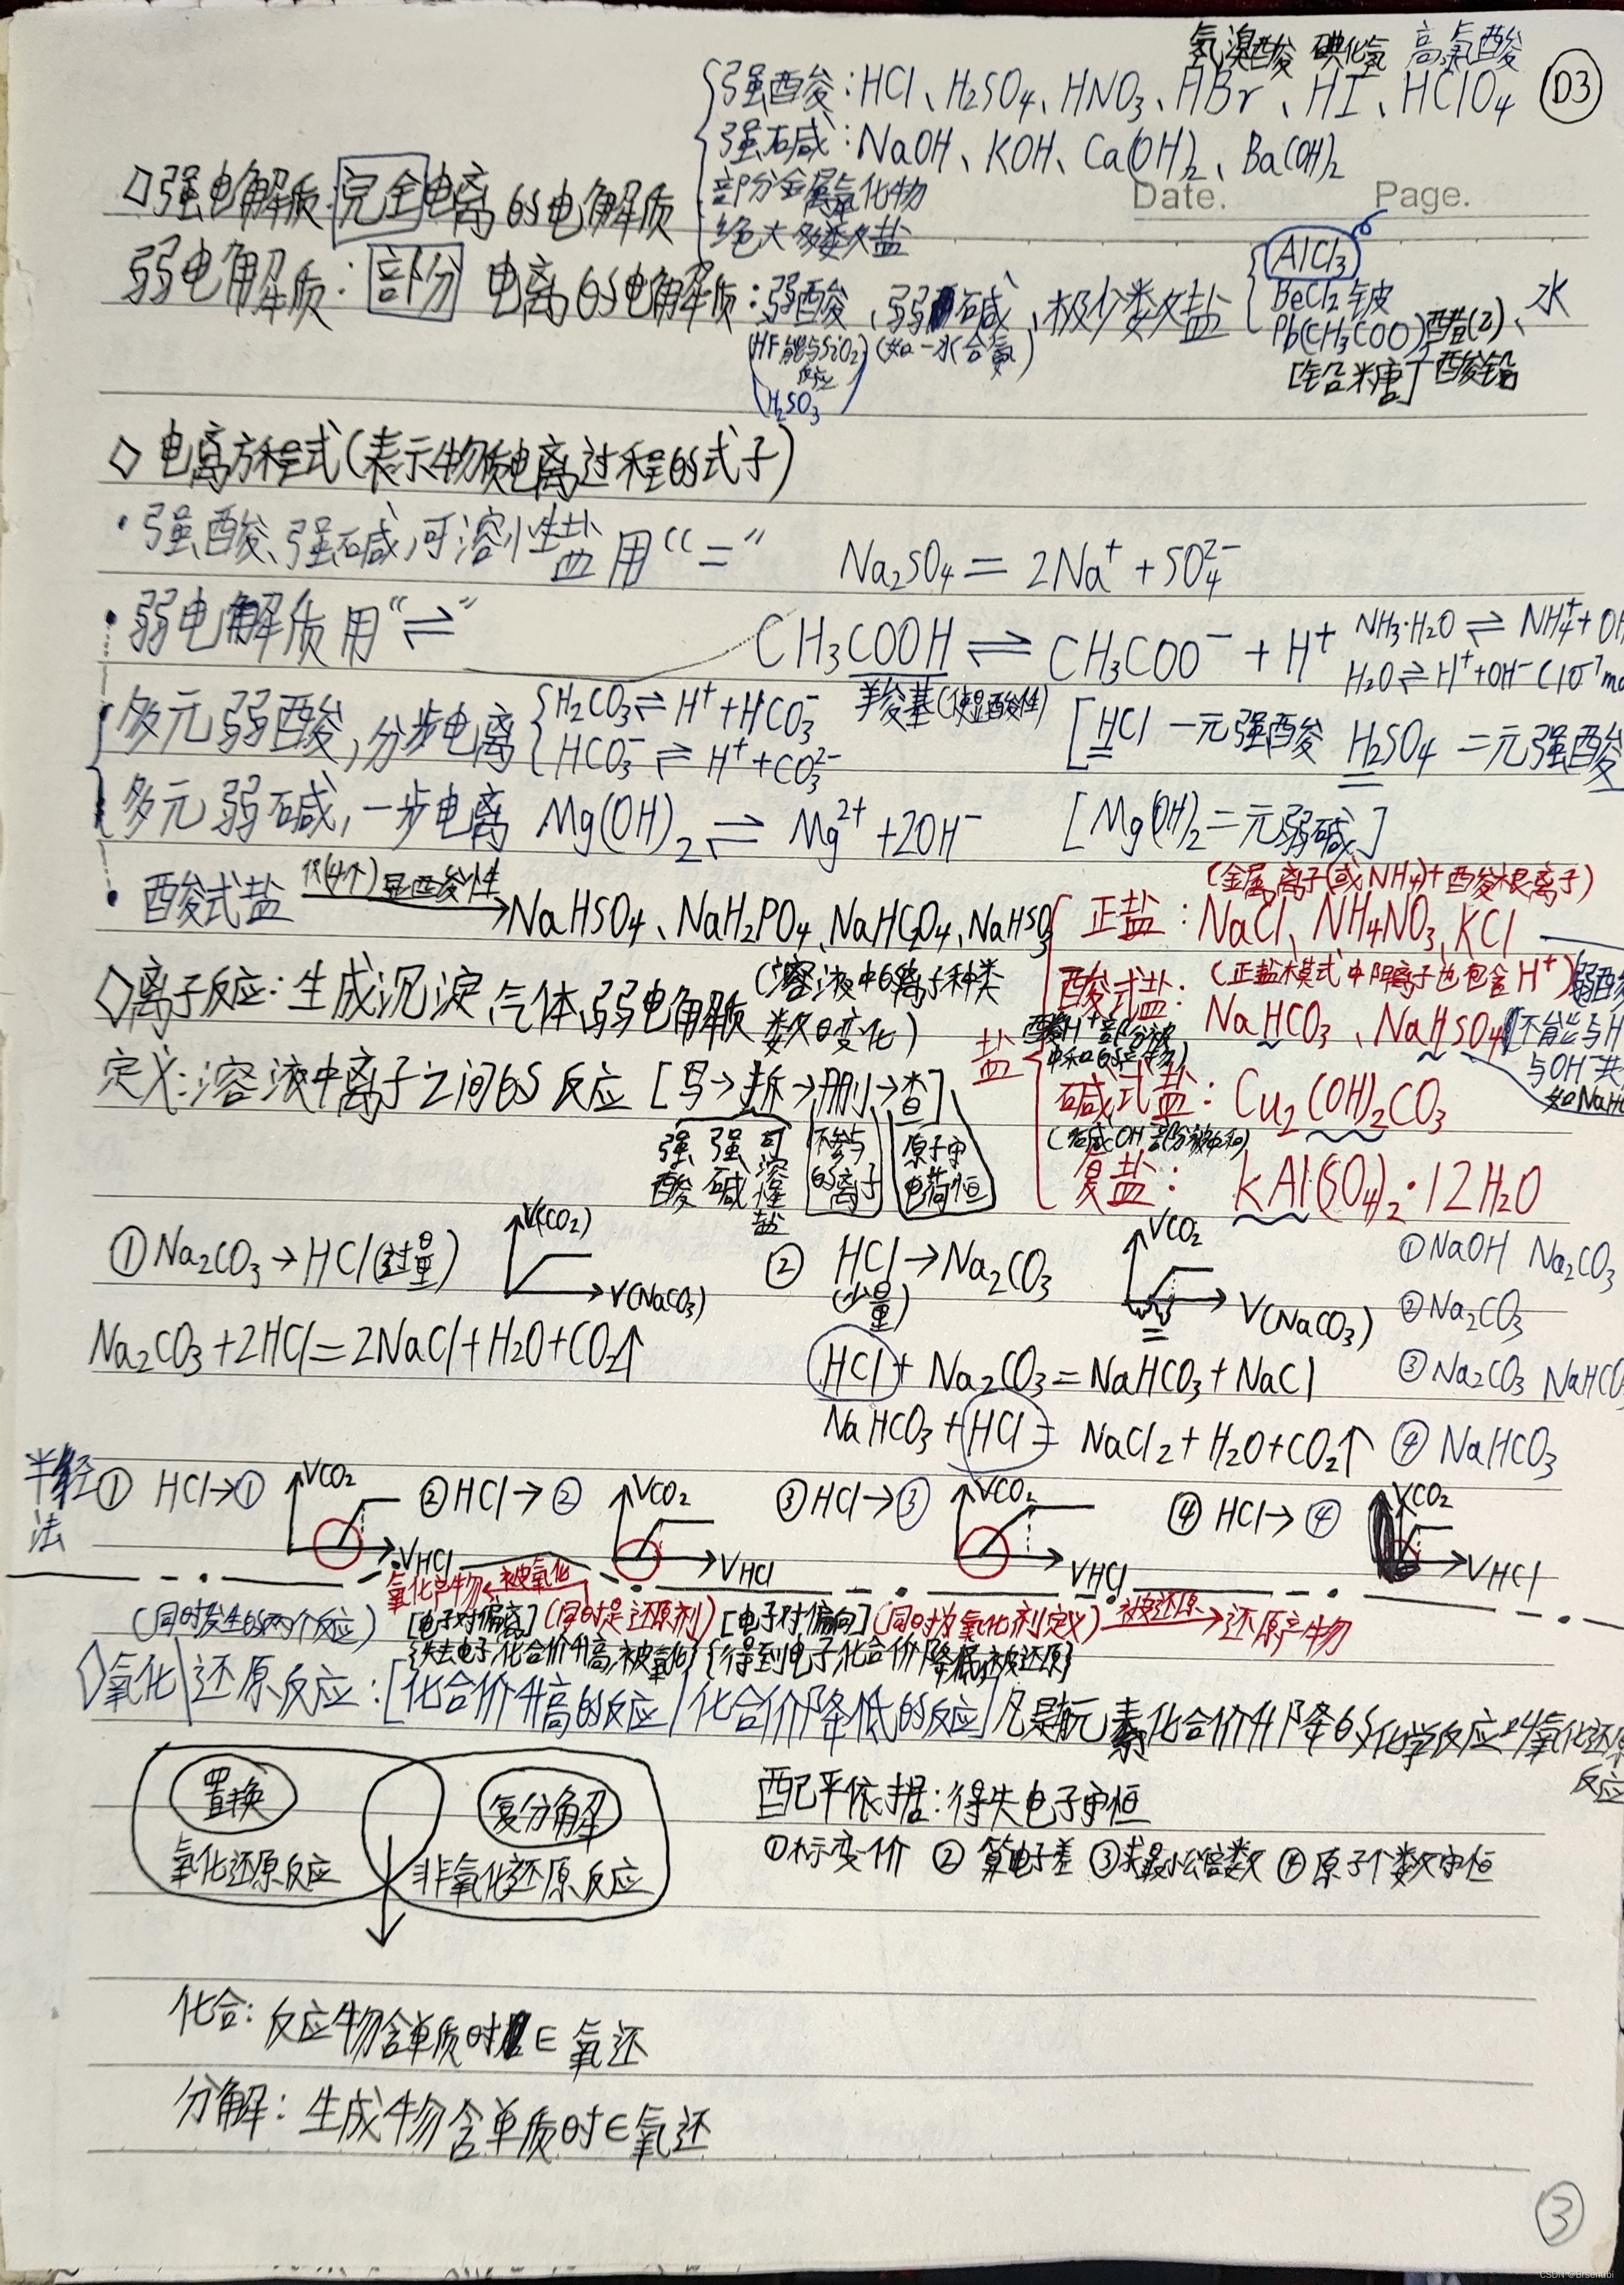 氢溴酸 碘化氢 高氯酸
强酸：HCl、H₂SO₄、HNO₃、HBr、HI、HClO₄ D3
强碱：NaOH、KOH、Ca(OH)₂、Ba(OH)₂
部分金属氧化物
Date. Page.
◇强电解质：完全电离的电解质
绝大多数盐
弱电解质：部分电离的电解质：弱酸、弱碱、极少数盐
AlCl₃
BeCl₂ 铍
Pb(CH₃COO)₂ 醋(2)、水
[铅糖] 酸铅
(HF能与SiO₂反应
H₂SO₃)
(如一水合氨)
◇电离方程式(表示物质电离过程的式子)
·强酸、强碱,可溶性盐用“=” Na₂SO₄=2Na⁺+SO₄²⁻
·弱电解质用“⇌” CH₃COOH⇌CH₃COO⁻+H⁺ NH₃·H₂O⇌NH₄⁺+OH
H₂O⇌H⁺+OH⁻(10⁻⁷mo
羊俊基(使显酸性)
多元弱酸,分步电离 H₂CO₃⇌H⁺+HCO₃⁻
HCO₃⁻⇌H⁺+CO₃²⁻
[HCl 一元强酸 H₂SO₄ 二元强酸
多元弱碱,一步电离 Mg(OH)₂⇌Mg²⁺+2OH⁻ [Mg(OH)₂二元弱碱]
·酸式盐 仅(4个)显酸性 NaHSO₄、NaH₂PO₄、NaHC₂O₄、NaHSO₃
(金属离子(或NH₄)+酸根离子)
盐
正盐：NaCl、NH₄NO₃、KCl
(正盐模式中阳离子也包含H⁺)
酸式盐：NaHCO₃、NaHSO₄
不能与H
与OH⁻共
如NaH
碱式盐：Cu₂(OH)₂CO₃
复盐：KAl(SO₄)₂·12H₂O
◇离子反应：生成沉淀 气体、弱电解质(溶液中的离子种类
数目变化)
定义：溶液中离子之间的反应 [写→拆→删→查]
强酸 强碱 可溶性盐 不参与的离子 原子守 电荷恒
①Na₂CO₃→HCl(过量) V(CO₂) V(NaCO₃)
② HCl→Na₂CO₃ VCO₂ V(NaCO₃)
(少量)
①NaOH Na₂CO₃
②Na₂CO₃
③Na₂CO₃ NaHCO
④NaHCO₃
Na₂CO₃+2HCl=2NaCl+H₂O+CO₂↑
HCl+Na₂CO₃=NaHCO₃+NaCl
NaHCO₃+HCl=NaCl₂+H₂O+CO₂↑
半径法
① HCl→① VCO₂ VHCl
②HCl→② VCO₂ VHCl
③HCl→③ VCO₂ VHCl
④ HCl→④ VCO₂ VHCl
氧化产物←被氧化
(同时发生的两个反应) [电子对偏离](同时是还原剂) [电子对偏向](同时为氧化剂定义) 被还原→还原产物
{失去电子,化合价升高,被氧化} {得到电子化合价降低,被还原}
◇氧化|还原反应：[化合价升高的反应/化合价降低的反应]凡是有元素化合价升降的化学反应 氧化还原
反应
置换 复分解
氧化还原反应 非氧化还原反应
配平依据：得失电子守恒
①标变价 ②算电子差 ③求最小公倍数 ④原子个数守恒
化合：反应物含单质时∈氧还
分解：生成物含单质时∈氧还
③
CSDN @Brsentibi